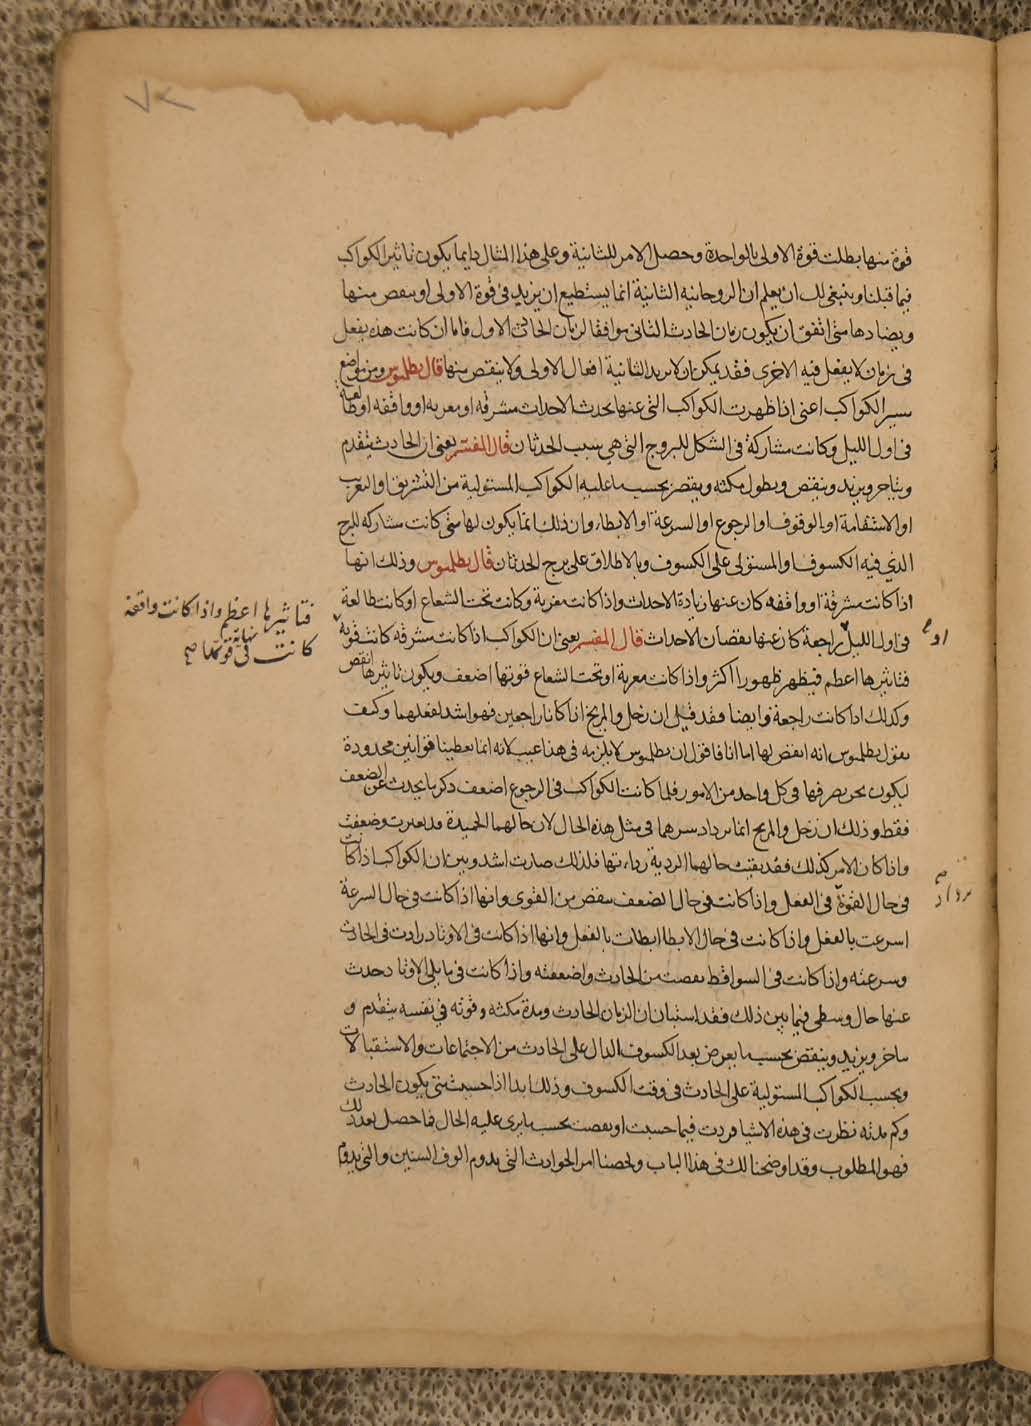 قوة منها بطلت قوة الاولى بالواحدة وحصل الامر للثانية وعلى هذا المثال دايما يكون تاثير الكواكب
فيما قبلنا وينبغى لك ان يعلم ان الروحانيه الثانية انما يستطيع ان يزيد فى قوة الاولى او ينقص منها
ويضادها متى اتفق ان يكون زمان الحادث الثانى موافقا لزمان الحادث الاول فاما ان كانت هذه يفعل
فى زمان لا يفعل فيه الاخرى فقد يمكن ان لا يزيد الثانية افعال الاولى ولا ينقص منها قال بطلميوس ومن مواضع
سير الكواكب اعنى اذا ظهرت الكواكب التى عنها يحدث الاحداث مشرقه او مغربه او واقفه او طالعة
فى اول الليل وكانت مشاركة فى الشكل للبروج التى هى سبب الحدثان قال المفسر يعنى ان الحادث يتقدم
ويتاخر ويزيد وينقص ويطول مكثه ويقصر بحسب ما عليه الكواكب المستولية من التشريق او التغريب
او الاستقامة او الوقوف او الرجوع او السرعة او الابطاء وان ذلك انما يكون لها متى كانت مشاركه للبرج
الذي فيه الكسوف او المستولى على الكسوف وبالاطلاق على برج الحدثان قال بطلميوس وذلك انها
اذا كانت مشرقة او واقفه كان عنها زيادة الاحداث واذا كانت مغربة وكانت تحت الشعاع او كانت طالعة
فى اول الليل راجعة كان عنها نقصان الاحداث قال المفسر يعنى ان الكواكب اذا كانت مشرقه كانت قوية
فتاثيرها اعظم فيظهر ظهورا اكثر واذا كانت مغربة او تحت الشعاع قوتها اضعف ويكون تاثيرها انقص
وكذلك اذا كانت راجعة وايضا فقد قيل ان زحل والمريخ اذا كانا راجعين فهو اشد لفعلهما وكيف
يقول بطلميوس انه انقص لها اما انا فاقول ان بطلميوس لا يلزمه فى هذا عيب لانه انما يعطينا قوانين محدودة
ليكون نحن نصرفها فى كل واحد من الامور فلما كانت الكواكب فى الرجوع اضعف ذكر ما يحدث عن الضعف
فقط وذلك ان زحل والمريخ انما يزداد شرهما فى مثل هذه الحال لان حالهما الحميدة قد تغيرت وضعفت
واذا كان الامر كذلك فقد بقيت حالهما الردية رداءتها فلذلك صارت اشد وبين ان الكواكب اذا كانت
فى حال القوة فى الفعل واذا كانت فى حال الضعف ينقص من القوى وانها اذا كانت فى حال السرعة
اسرعت بالفعل واذا كانت فى حال الابطا ابطات بالفعل وانها اذا كانت فى الاوتاد زادت فى الحادث
وسرعته واذا كانت فى السواقط نقصت من الحادث واضعفته واذا كانت فى ما يلى الاوتاد حدث
عنها حال وسطى فيما بين ذلك فقد استبان ان الزمان الحادث ومدة مكثه وقوته فى نفسه يتقدم و
يتاخر ويزيد وينقص بحسب ما يعرض بعد الكسوف الدال على الحادث من الاجتماعات والاستقبالات
وبحسب الكواكب المستولية على الحادث فى وقت الكسوف وذلك بدا اذا حسبت متى يكون الحادث
وكم مدته نظرت فى هذه الاشيا فزدت فيما حسبت او نقصت بحسب ما يرى عليه الحال فما حصل بعد ذلك
فهو المطلوب وقد اوضحنا لك فى هذا الباب ولخصنا امر الحوادث التى يدوم الوف السنين والتى يدوم
فتاثيرها اعظم واذا كانت واقفة
كانت فى نهاية قوتها صح
او صح
يزداد صح